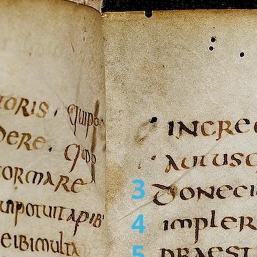 toris · quip
dere · qui
formare
quipotuitapib
eibimulta
increc
autusq
3 donec
4 impler
5 praest